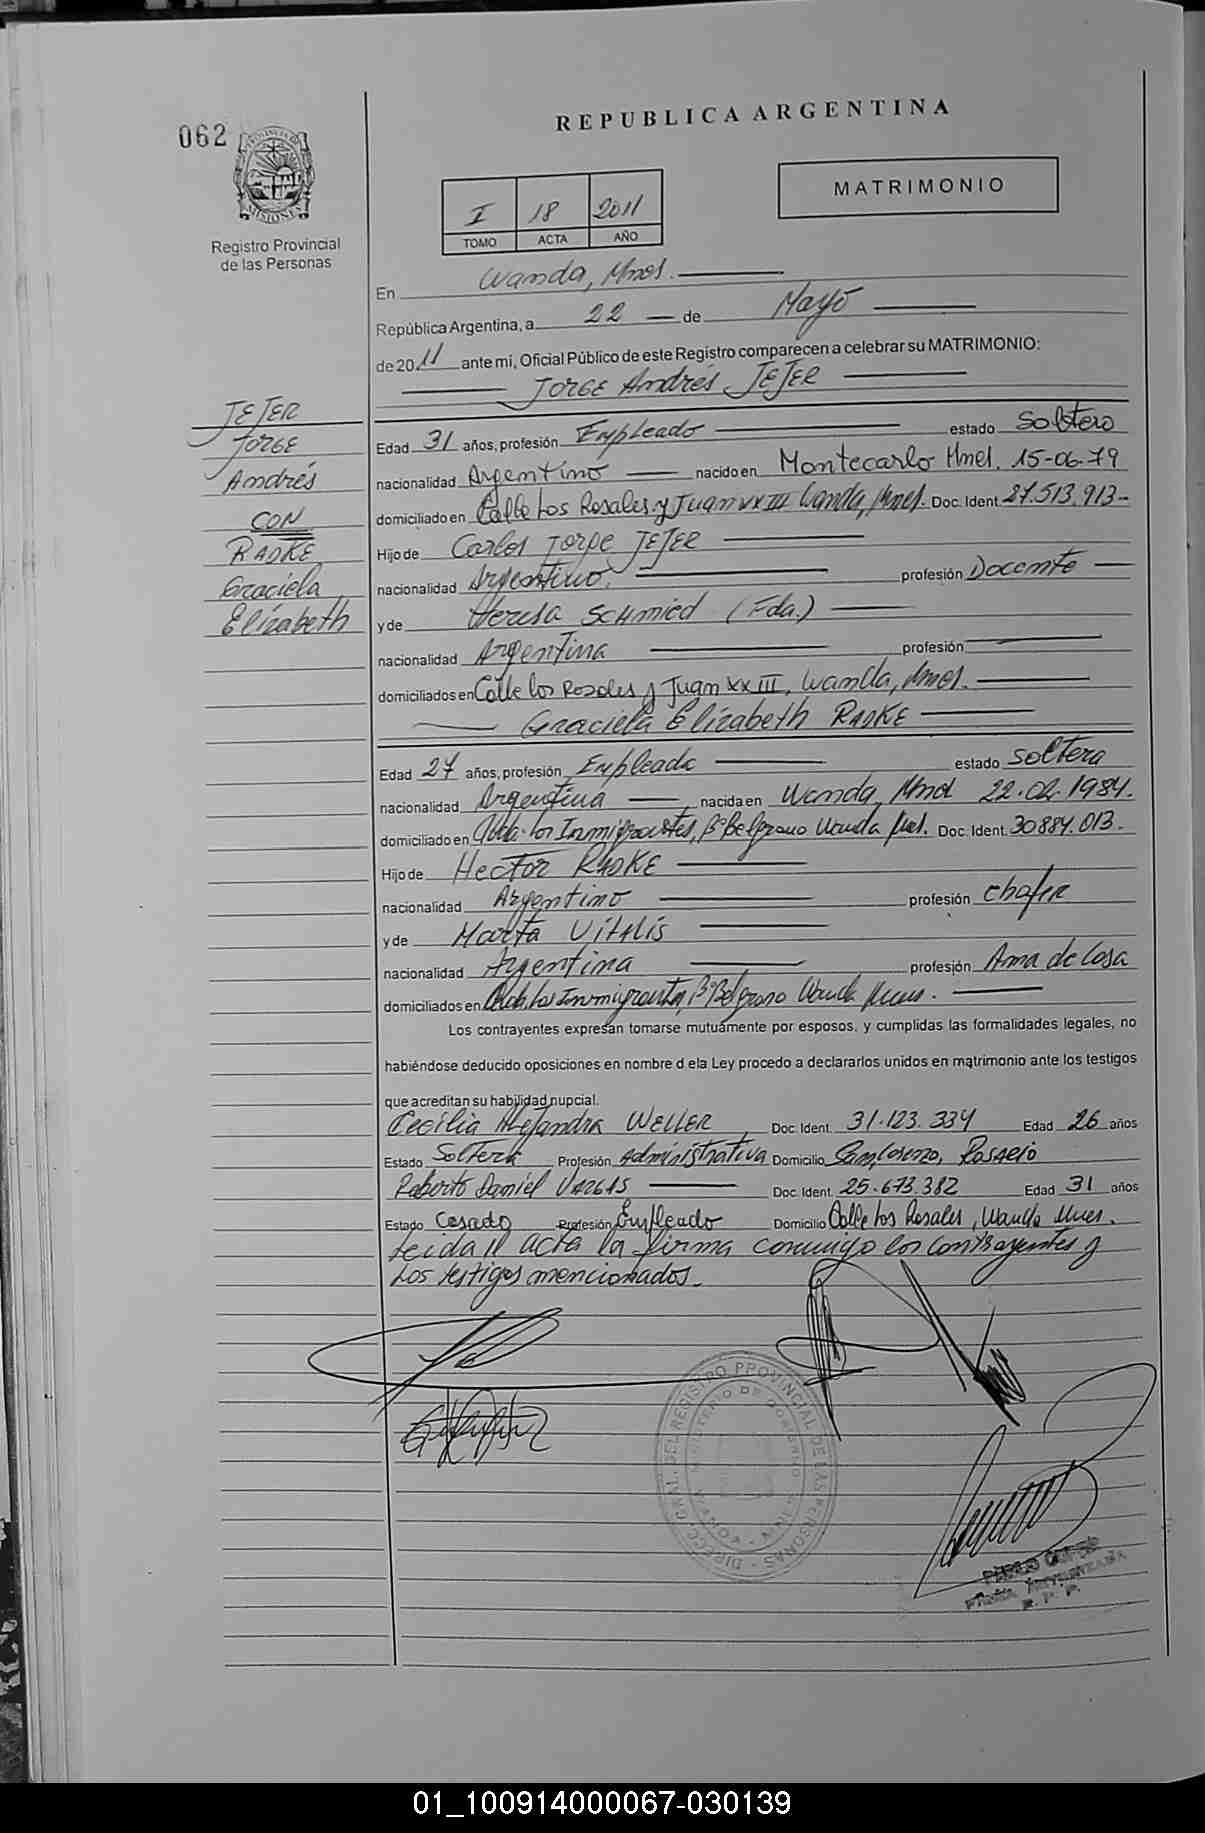 062
REPUBLICA ARGENTINA
PROVINCIA DE
MISIONES
MATRIMONIO
Registro Provincial
de las Personas
I 18 2011
TOMO ACTA AÑO
En Wanda, Mnes.
República Argentina, a 22 de Mayo
de 2011 ante mi, Oficial Público de este Registro comparecen a celebrar su MATRIMONIO:
Jorge Andrés JEJER
JEJER
Jorge
Andrés
CON
RADKE
Graciela
Elizabeth
Edad 31 años, profesión Empleado estado Soltero
nacionalidad Argentino nacido en Montecarlo Mnes. 15-06-79
domiciliado en Calle Los Rosales y Juan XXIII Wanda, Mnes. Doc. Ident. 27.513.913-
Hijo de Carlos Jorge JEJER
nacionalidad Argentino. profesión Docente
y de Teresa SCHmied (Fda.)
nacionalidad Argentina profesión
domiciliados en Calle los Rosales y Juan XXIII, Wanda, Mnes.
Graciela Elizabeth RADKE
Edad 27 años, profesión Empleada estado Soltera
nacionalidad Argentina nacida en Wanda, Mnes 22.02.1984.
domiciliado en Avda. los Inmigrantes, Bº Belgrano Wanda Mnes. Doc. Ident. 30884.013.
Hijo de Hector RADKE
nacionalidad Argentino profesión Chofer
y de Marta Vitalis
nacionalidad Argentina profesión Ama de Casa
domiciliados en Avda. Los Inmigrantes, Bº Belgrano Wanda Mnes.
Los contrayentes expresan tomarse mutuamente por esposos, y cumplidas las formalidades legales, no
habiéndose deducido oposiciones en nombre d ela Ley procedo a declararlos unidos en matrimonio ante los testigos
que acreditan su habilidad nupcial.
Cecilia Alejandra WELLER Doc. Ident. 31.123.334 Edad 26 años
Estado Soltera Profesión Administrativa Domicilio San Lorenzo, Rosario
Roberto Daniel VARGAS Doc. Ident. 25.673.382 Edad 31 años
Estado Casado Profesión Empleado Domicilio Calle los Rosales, Wanda Mnes.
Leida el acta la firma conmigo los Contrayentes y
Los testigos mencionados.
DIRECC. GRAL. DEL REGISTRO PROVINCIAL DE LAS PERSONAS
MINISTERIO DE GOBIERNO
WANDA
01_100914000067-030139